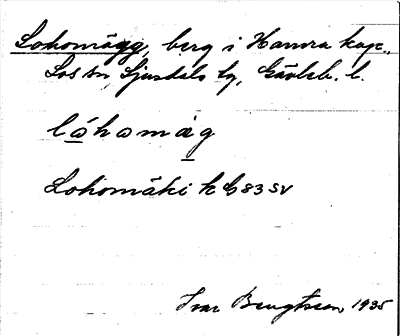 Lohomägg, berg i Hamra kap.,
Los sn, Ljusdals tg, Gävleb. l.
lòhomàg
Lohomäki k G 83 SV
Ivar Bengtsson 1935